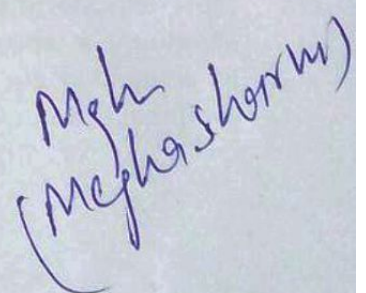 Megh
(Meghasharma)